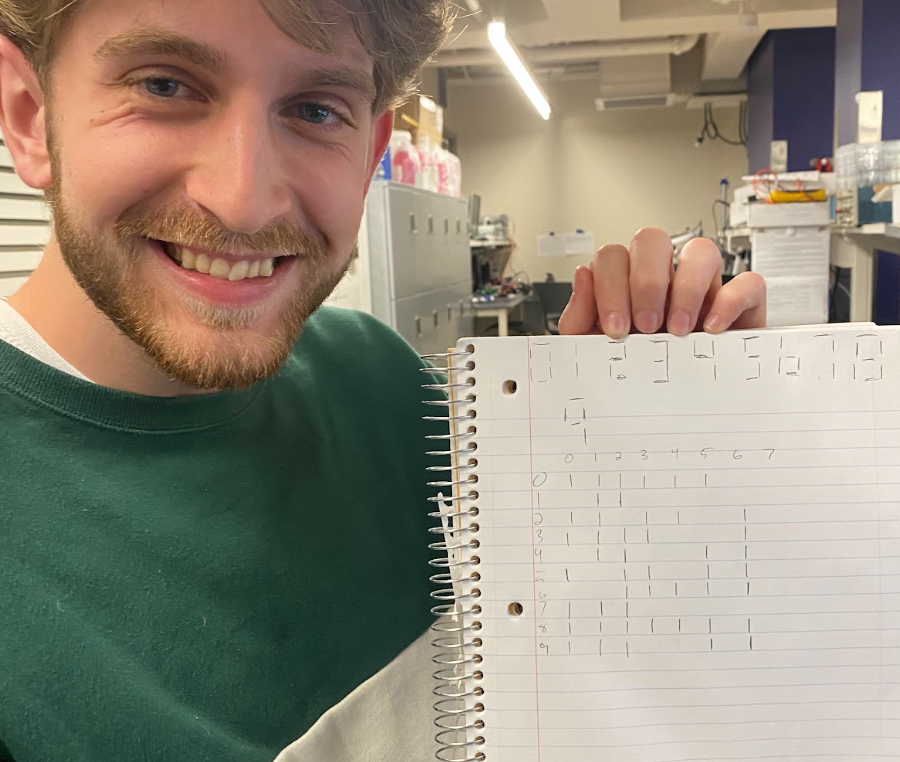 0 1 2 3 4 5 6 7 8
9
0 1 2 3 4 5 6 7
0 | | | | | |
1 | |
2 | | | | |
3 | | | | |
4 | | | |
5 | | | | |
6 | | | | |
7 | | |
8 | | | | | | |
9 | | | | |